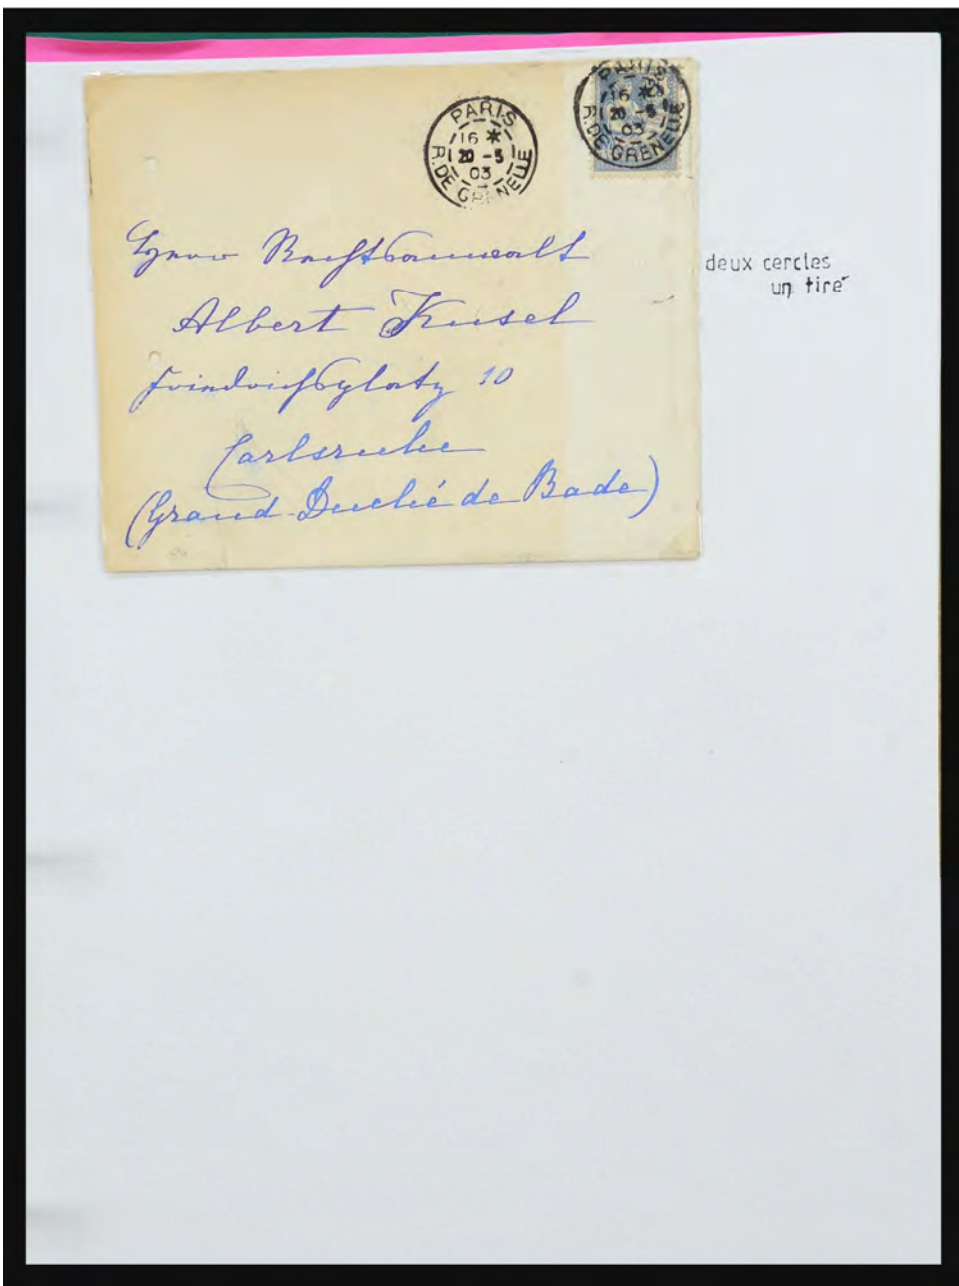 PARIS
16 *
20 -5
03
R. DE GRENELLE
PARIS
16 *
20 -5
03
R. DE GRENELLE
Herrn Rechtsanwalt
Albert Kusel
Friedrichsplatz 10
Carlsruhe
(Grand-Duché de Bade)
deux cercles
un tiré